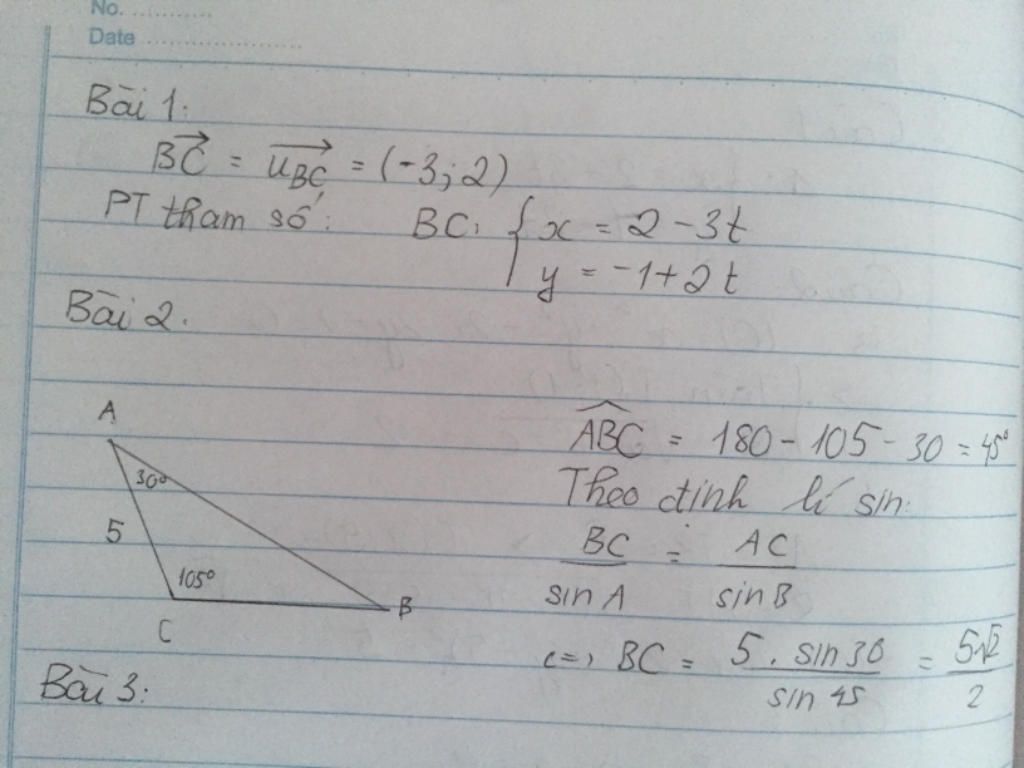 No. ............
Date ........................
Bài 1:
BC→ = u_BC→ = (-3; 2)
PT tham số: BC: { x = 2 - 3t
y = -1 + 2t
Bài 2.
A
30°
5
105°
C
B
ABC^ = 180 - 105 - 30 = 45°
Theo định lí sin:
BC/sin A = AC/sin B
<=> BC = 5 . sin 30/sin 45 = 5√2/2
Bài 3: